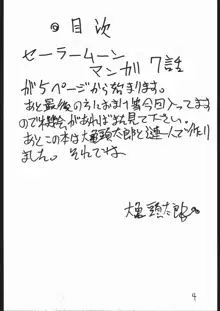 ◎目次
セーラームーン
マンガ 7話
が5ページから始まります。
あと最後の方におまけ 今回入ってます
ので機会があればまた見て下さい。
あとこの本は大亀頭太郎と達人で作り
ました。それでは
大亀頭太郎
4